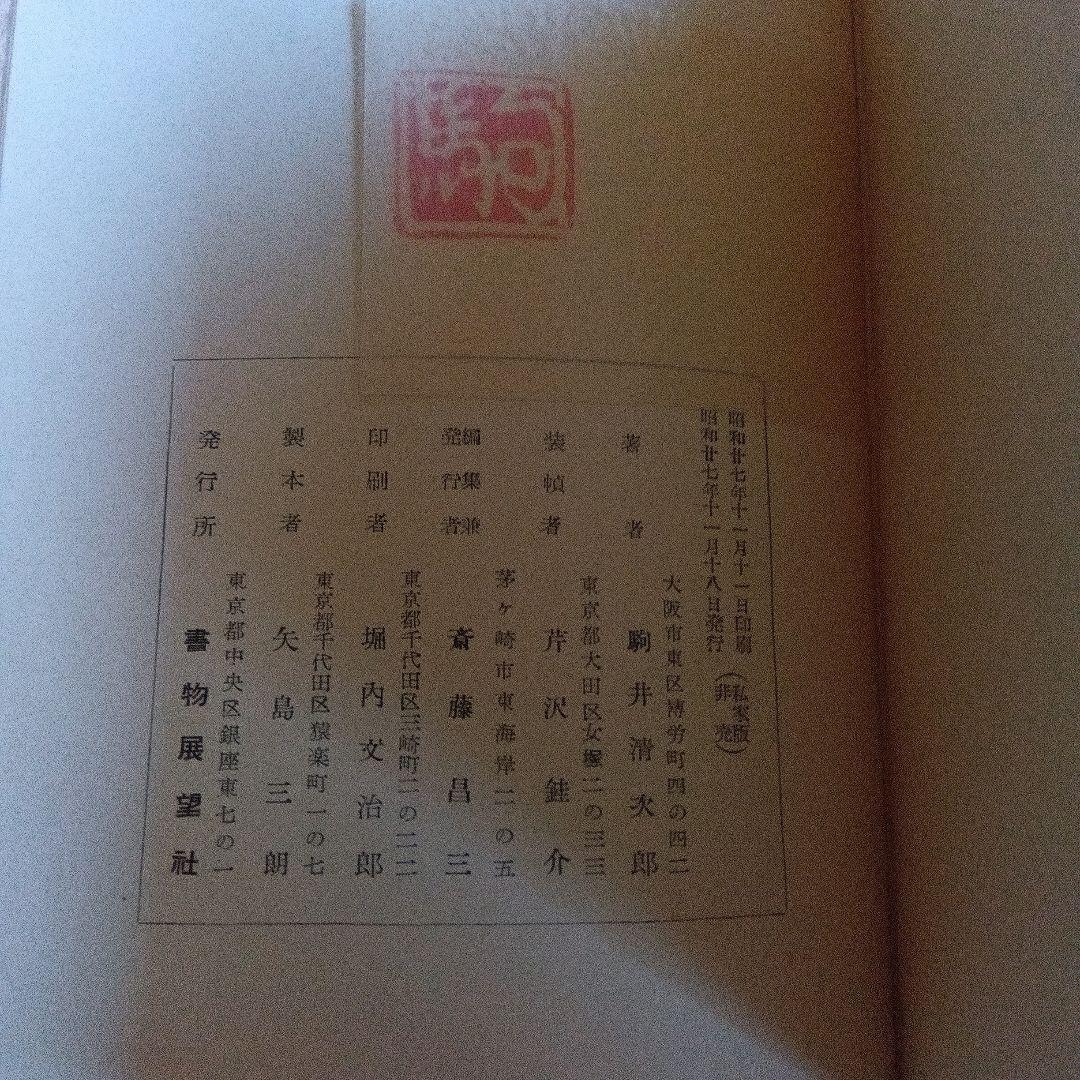 昭和廿七年十一月十一日印刷
昭和廿七年十一月十八日発行
（私家版
非売）
大阪市東区博労町四の四二
著者 駒井清次郎
東京都大田区女塚二の三三
装幀者 芹沢銈介
茅ヶ崎市東海岸二の五
編集兼
発行者 斎藤昌三
東京都千代田区三崎町二の二二
印刷者 堀内文治郎
東京都千代田区猿楽町一の七
製本者 矢島三朗
東京都中央区銀座東七の一
発行所 書物展望社